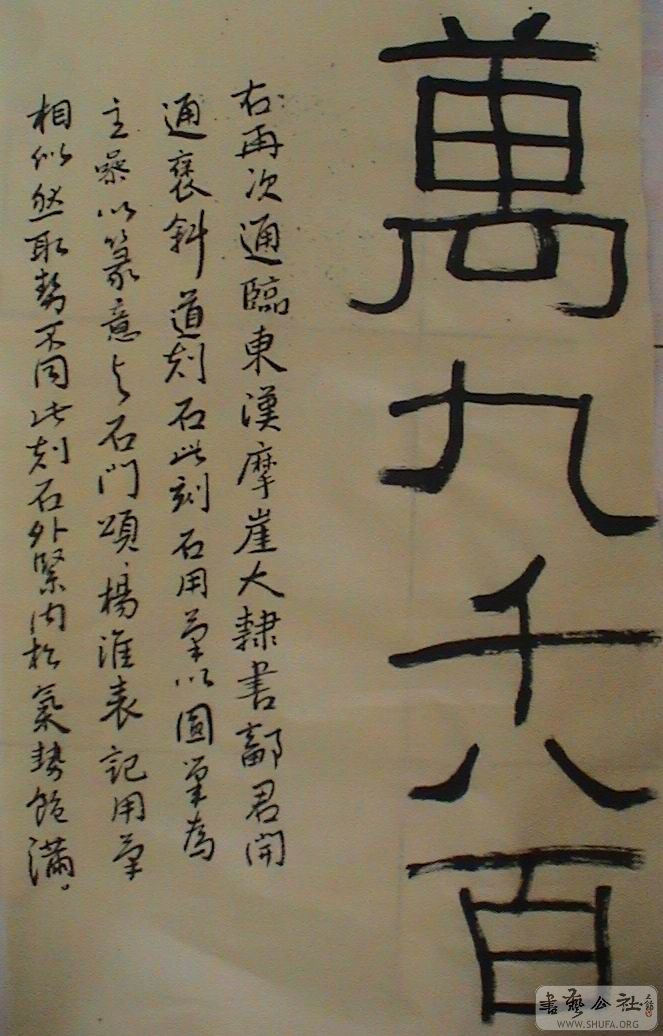 萬九千八百
右再次通臨東漢摩崖大隸書鄐君開
通褒斜道刻石此刻石用筆以圓筆為
主摻以篆意与石門頌楊淮表記用筆
相似然取勢不同此刻石外緊内松氣勢飽滿。
書藝公社
WWW.SHUFA.ORG